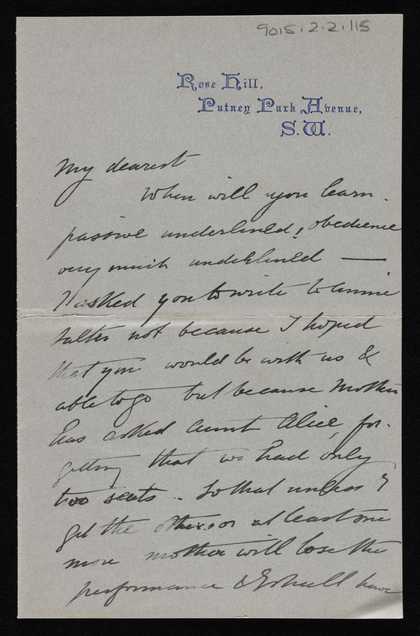 9015.2.2.115
Rose Hill,
Putney Park Avenue,
S.W.
My dearest
When will you learn
passive underlined, obedience
very much underlined —
I asked you to write to Annie
not because I hoped
that you would be with us &
able to go but because Mother
has asked Aunt Alice, for-
getting that we had only
two seats. So that unless I
get the others or at least one
more mother will lose the
performance & I shall have